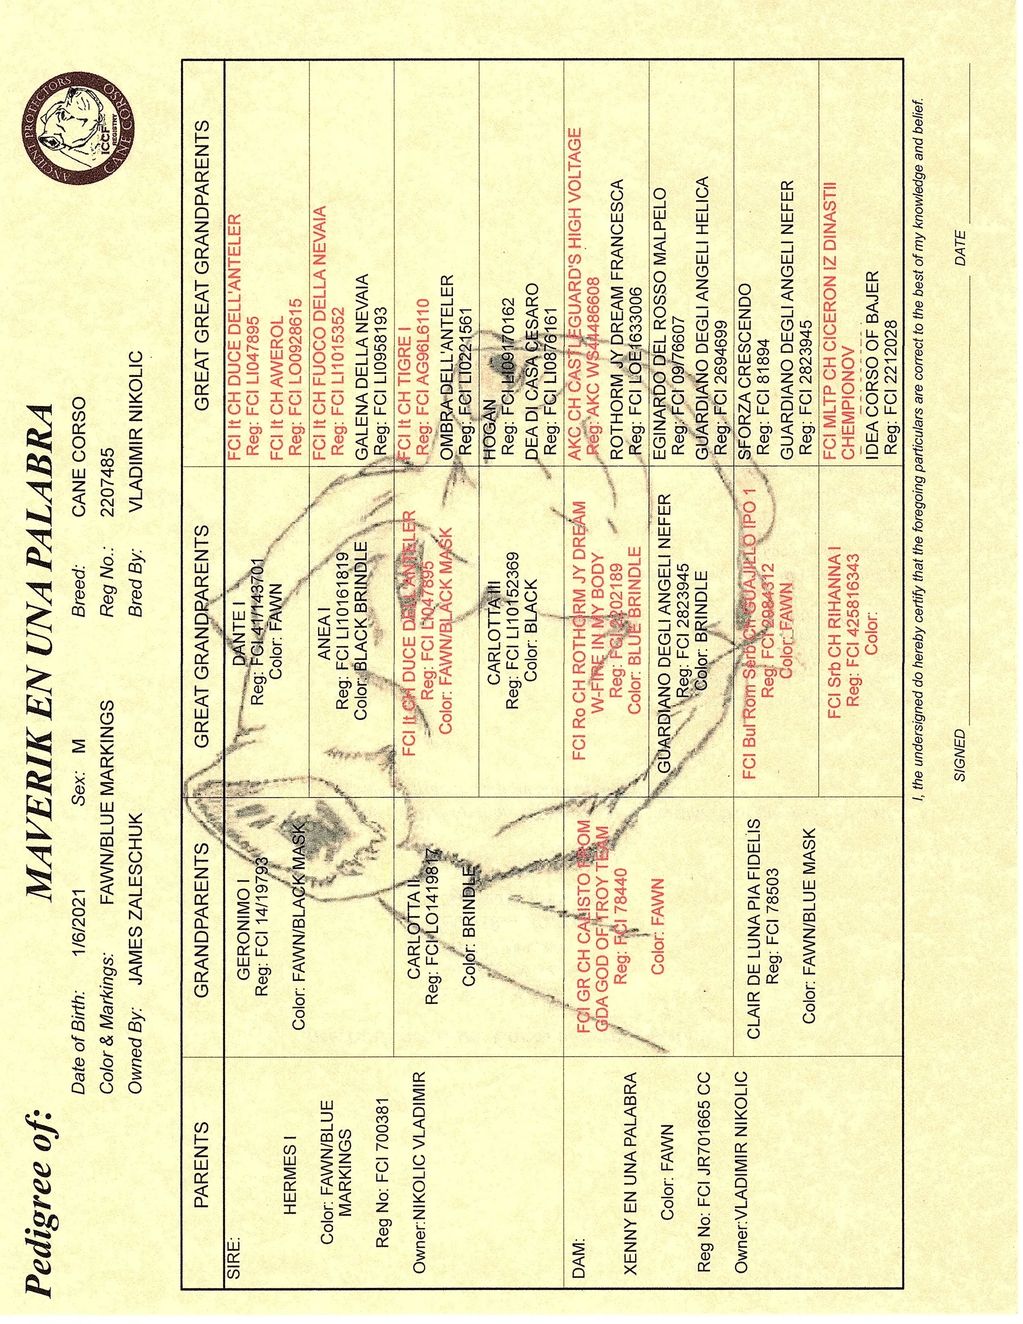 Pedigree of: MAVERIK EN UNA PALABRA
Date of Birth: 1/6/2021 Sex: M Breed: CANE CORSO
Color & Markings: FAWN/BLUE MARKINGS Reg No.: 2207485
Owned By: JAMES ZALESCHUK Bred By: VLADIMIR NIKOLIC
ANCIENT PROTECTORS
ICCF
REGISTRY
CANE CORSO
PARENTS GRANDPARENTS GREAT GRANDPARENTS GREAT GREAT GRANDPARENTS
SIRE:
HERMES I
Color: FAWN/BLUE
MARKINGS
Reg No: FCI 700381
Owner:NIKOLIC VLADIMIR
DAM:
XENNY EN UNA PALABRA
Color: FAWN
Reg No: FCI JR701665 CC
Owner:VLADIMIR NIKOLIC
GERONIMO I
Reg: FCI 14/19793
Color: FAWN/BLACK MASK
CARLOTTA II
Reg: FCI LO1419817
Color: BRINDLE
FCI GR CH CALISTO FROM
GDA GOD OF TROY TEAM
Reg: FCI 78440
Color: FAWN
CLAIR DE LUNA PIA FIDELIS
Reg: FCI 78503
Color: FAWN/BLUE MASK
DANTE I
Reg: FCI 41/143701
Color: FAWN
ANEA I
Reg: FCI LI10161819
Color: BLACK BRINDLE
FCI It CH DUCE DELL'ANTELER
Reg: FCI LI047895
Color: FAWN/BLACK MASK
CARLOTTA III
Reg: FCI LI10152369
Color: BLACK
FCI Ro CH ROTHORM JY DREAM
W-FIRE IN MY BODY
Reg: FCI 2202189
Color: BLUE BRINDLE
GUARDIANO DEGLI ANGELI NEFER
Reg: FCI 2823945
Color: BRINDLE
FCI Bul Rom Serb CH GUAJILLO IPO 1
Reg: FCI 2984312
Color: FAWN
FCI Srb CH RIHANNA I
Reg: FCI 425816343
Color:
FCI It CH DUCE DELL'ANTELER
Reg: FCI LI047895
FCI It CH AWEROL
Reg: FCI LO0928615
FCI It CH FUOCO DELLA NEVAIA
Reg: FCI LI1015352
GALENA DELLA NEVAIA
Reg: FCI LI0958193
FCI It CH TIGRE I
Reg: FCI AG96L6110
OMBRA DELL'ANTELER
Reg: FCI LI0221561
HOGAN
Reg: FCI LI09170162
DEA DI CASA CESARO
Reg: FCI LI0876161
AKC CH CASTLEGUARD'S HIGH VOLTAGE
Reg: AKC WS44486608
ROTHORM JY DREAM FRANCESCA
Reg: FCI LOE1633006
EGINARDO DEL ROSSO MALPELO
Reg: FCI 09/776607
GUARDIANO DEGLI ANGELI HELICA
Reg: FCI 2694699
SFORZA CRESCENDO
Reg: FCI 81894
GUARDIANO DEGLI ANGELI NEFER
Reg: FCI 2823945
FCI MLTP CH CICERON IZ DINASTII
CHEMPIONOV
IDEA CORSO OF BAJER
Reg: FCI 2212028
I, the undersigned do hereby certify that the foregoing particulars are correct to the best of my knowledge and belief.
SIGNED DATE